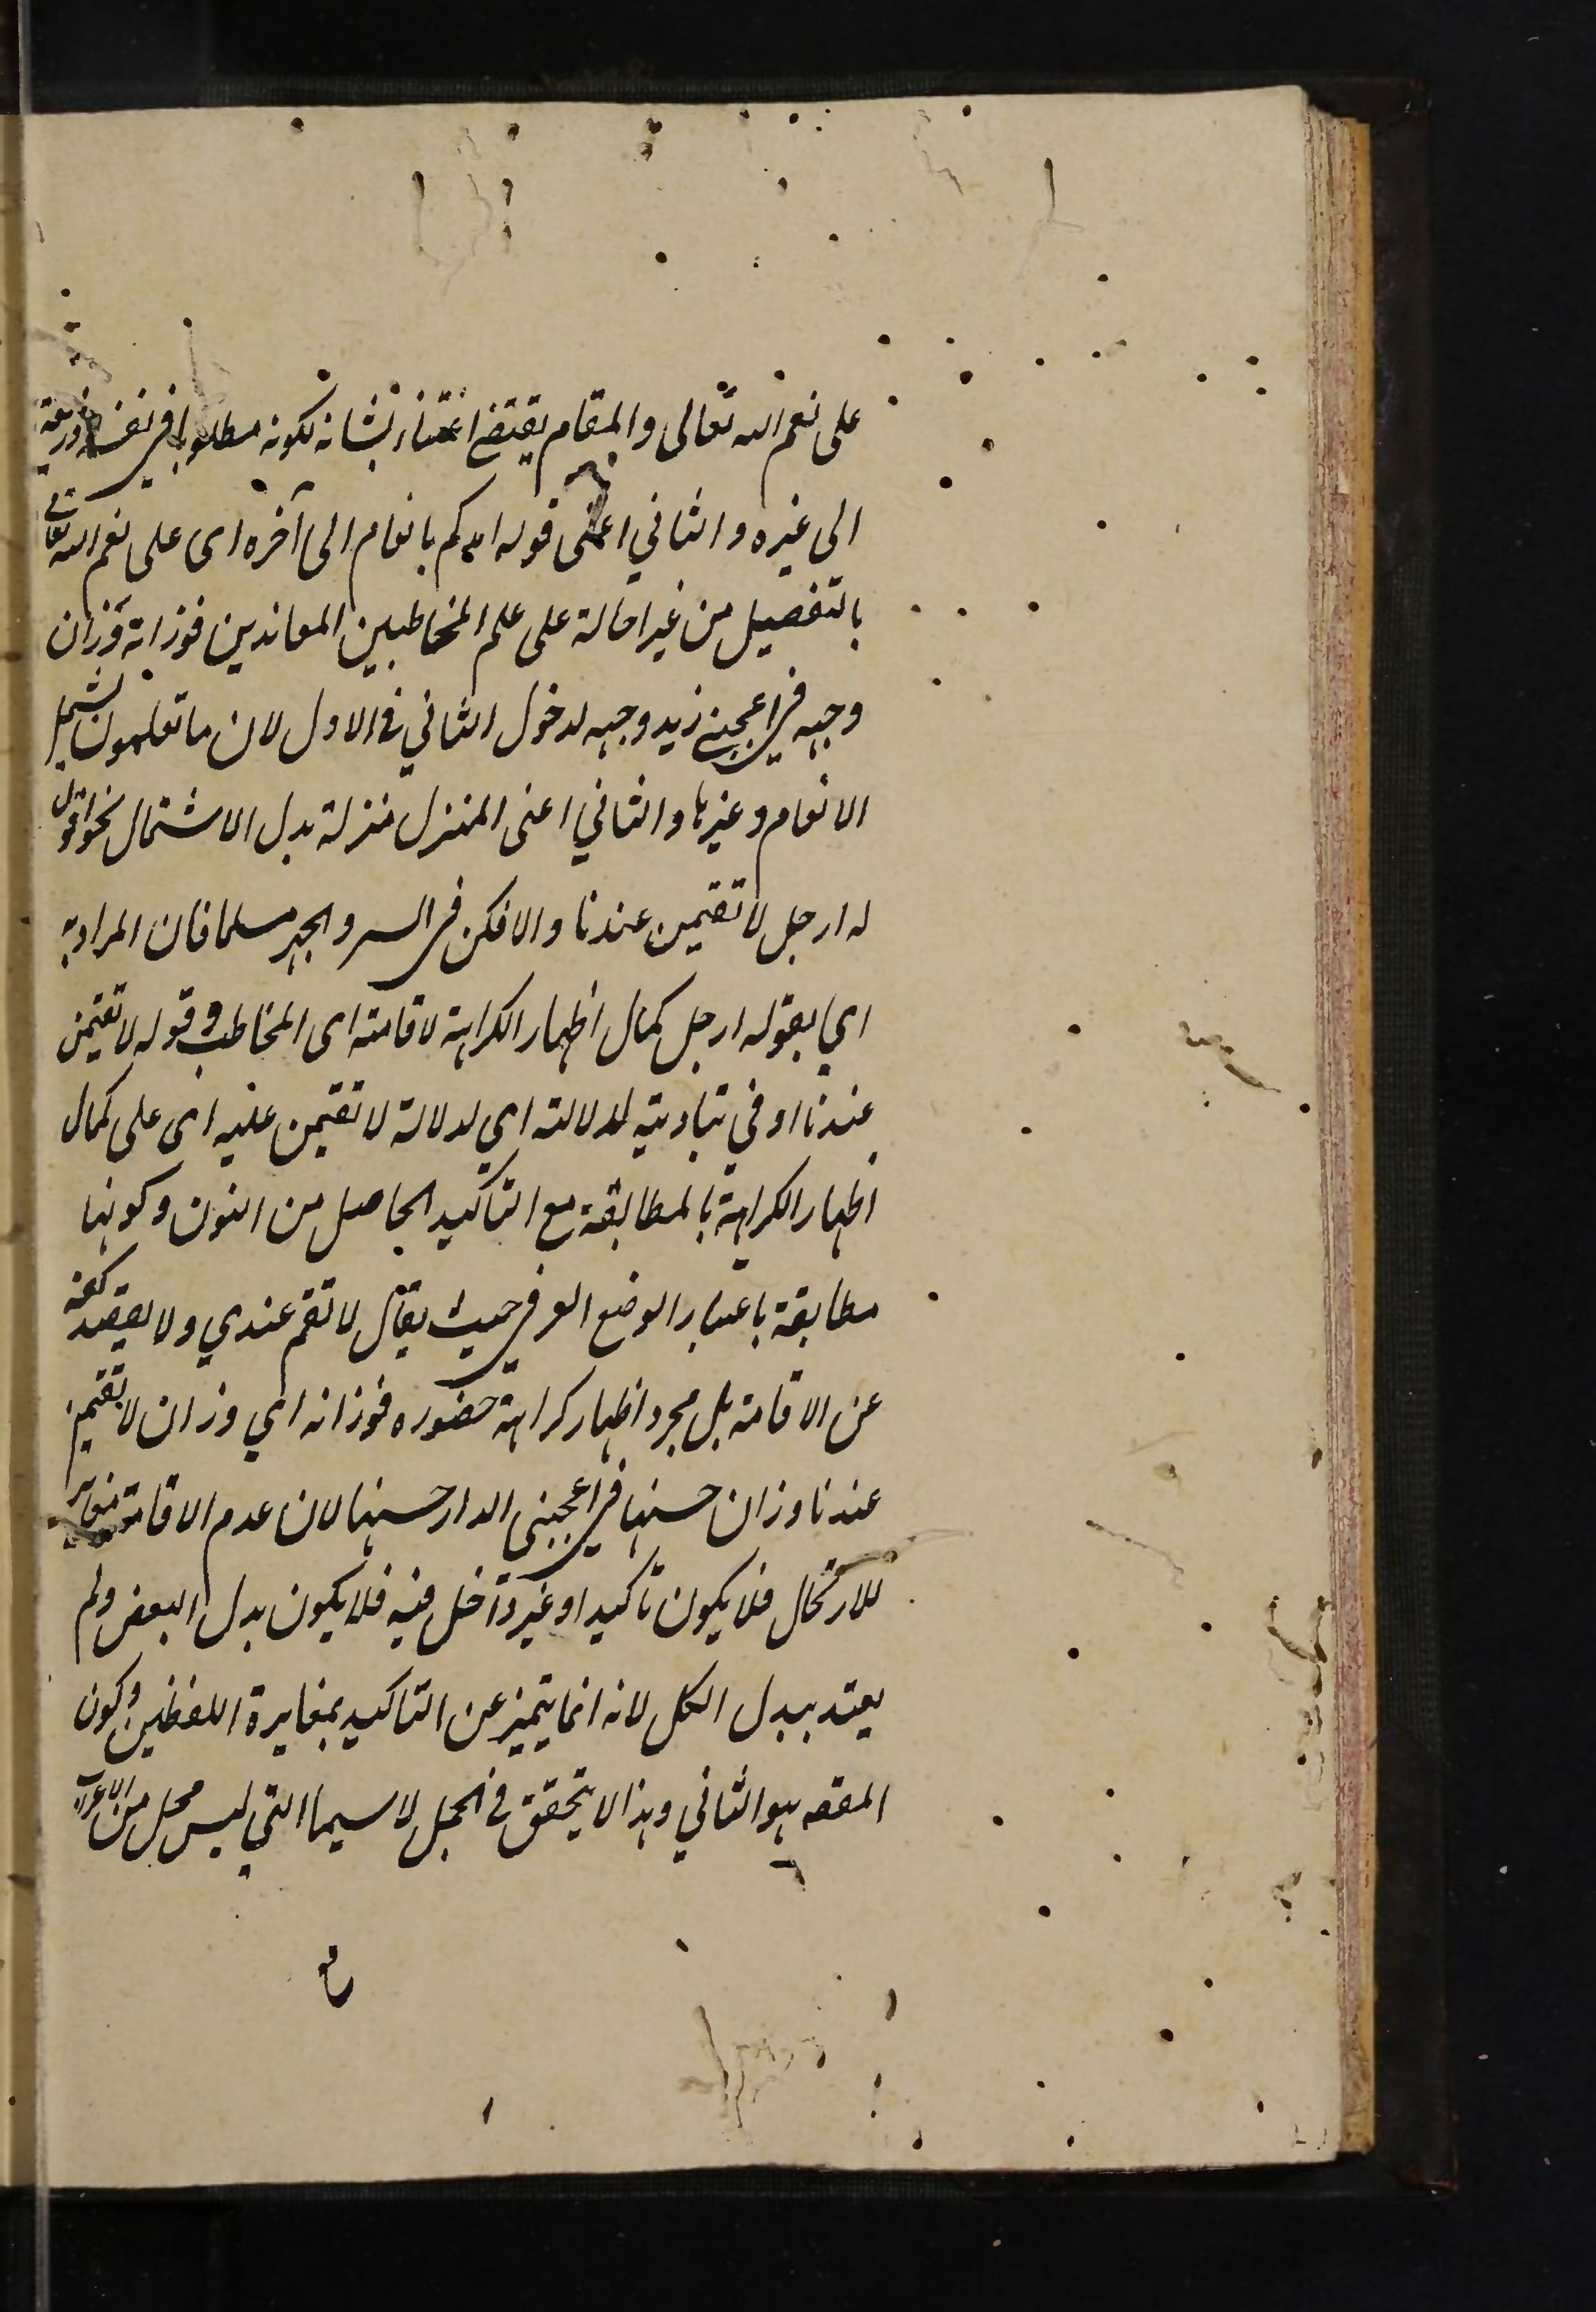 على نعم الله تعالى والمقام يقتضى اعتناء بشانه لكونه مطلوبا فى نفسه وذريعة
الى غيره والثاني اعنى قوله امدكم بانعام الى آخره اى على نعم الله تعالى
بالتفصيل من غير احالة على علم المخاطبين المعاندين فوزانه وزان
وجهه فى اعجبنى زيد وجهه لدخول الثاني فى الاول لان ما تعلمون يشمل
الانعام وغيرها والثاني اعنى المنزل منزلة بدل الاشتمال نحو اقول
له ارحل لا تقيمن عندنا والا فكن فى السر والجهر مسلما فان المراد به
اي بقوله ارحل كمال اظهار الكراهة لاقامته اى المخاطب وقوله لا تقيمن
عندنا اوفى بتاديته لدلالته اي لدلالة لا تقيمن عليه اى على كمال
اظهار الكراهة بالمطابقة مع التاكيد الحاصل من النون وكونها
مطابقة باعتبار الوضع العرفى حيث يقال لا تقم عندي ولا يقصد كفه
عن الاقامة بل مجرد اظهار كراهة حضوره فوزانه اي وزان لا تقيمن
عندنا وزان حسنها فى اعجبنى الدار حسنها لان عدم الاقامة مغاير
للارتحال فلا يكون تاكيدا وغير داخل فيه فلا يكون بدل البعض ولم
يعتد ببدل الكل لانه انما يتميز عن التاكيد بمغايرة اللفظين وكون
المقصـ هو الثاني وهذا لا يتحقق فى الجمل لا سيما التي ليس محل من الاعراب